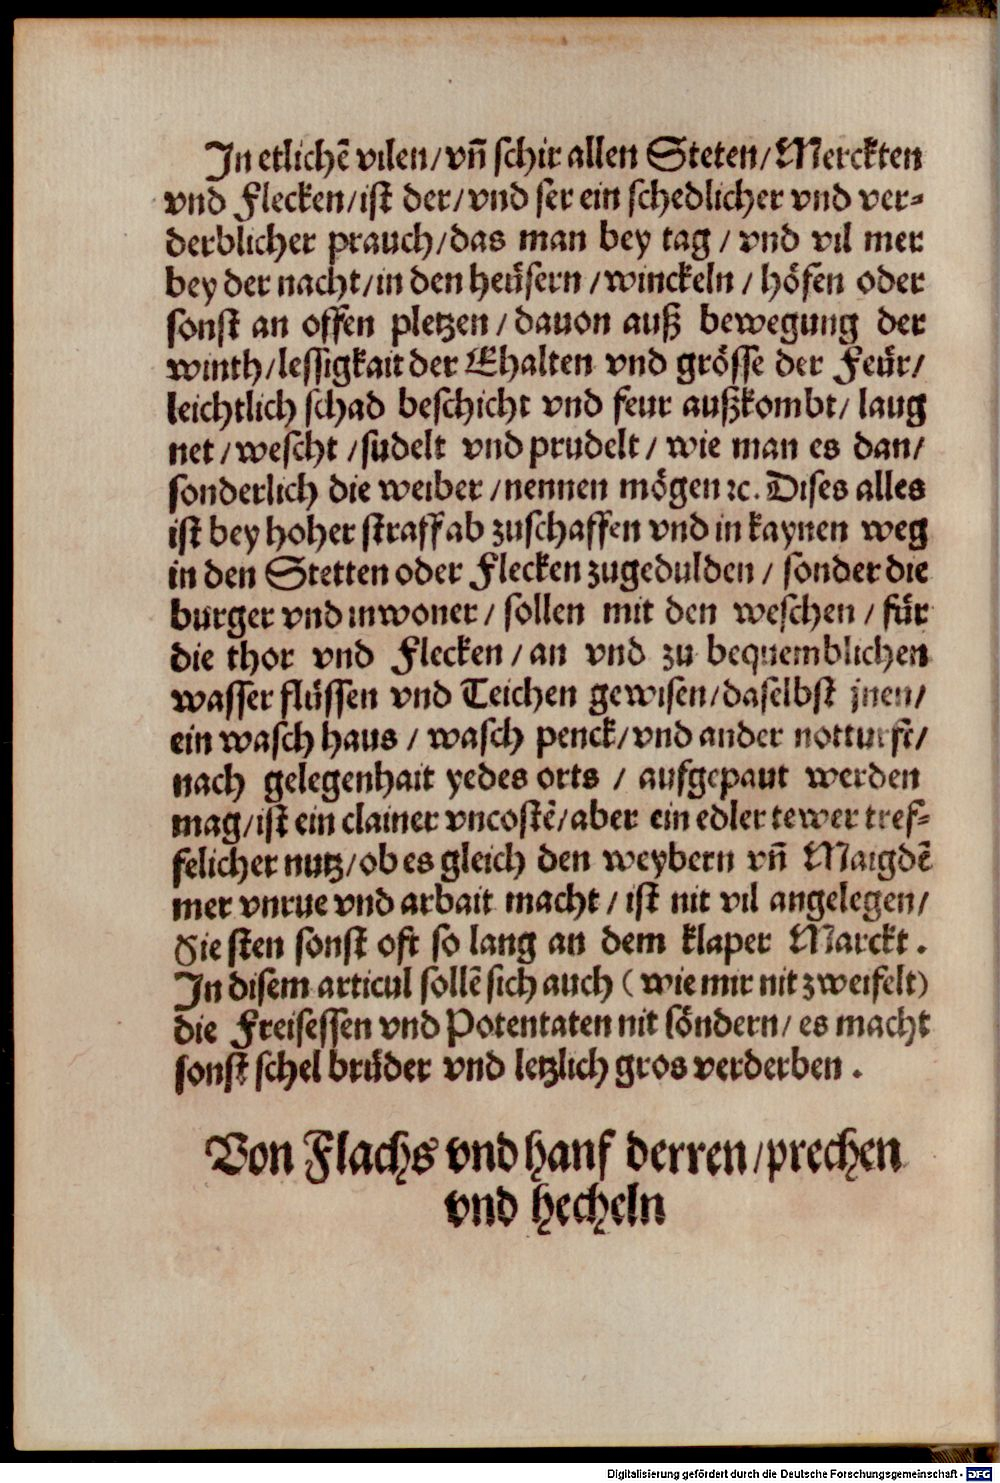 In etlichẽ vilen/vñ schir allen Steten/Merckten
vnd Flecken/ist der/vnd ser ein schedlicher vnd ver⸗
derblicher prauch/das man bey tag / vnd vil mer
bey der nacht/in den heüsern /winckeln / höfen oder
sonst an offen pletzen /dauon auß bewegung der
winth/lessigkait der Ehalten vnd grösse der Feür/
leichtlich schad beschicht vnd feur außkombt/ laug
net /wescht /sudelt vnd prudelt / wie man es dan/
sonderlich die weiber /nennen mögen ꝛc. Dises alles
ist bey hoher straff ab zuschaffen vnd in kaynen weg
in den Stetten oder Flecken zugedulden / sonder die
burger vnd inwoner / sollen mit den weschen / für
die thor vnd Flecken /an vnd zu bequemblichen
wasser flüssen vnd Teichen gewisen/daselbst jnen/
ein wasch haus / wasch penck/vnd ander notturft/
nach gelegenhait yedes orts / aufgepaut werden
mag/ist ein clainer vncostẽ/aber ein edler tewer tref⸗
felicher nutz/ob es gleich den weybern vñ Maigdẽ
mer vnrue vnd arbait macht / ist nit vil angelegen/
Sie sten sonst oft so lang an dem klaper Marckt .
In disem articul sollẽ sich auch ( wie mir nit zweifelt)
die Freisessen vnd Potentaten nit söndern/ es macht
sonst schel brüder vnd letzlich gros verderben .
Von Flachs vnd hanf derren/prechen
vnd hecheln
Digitalisierung gefördert durch die Deutsche Forschungsgemeinschaft - DFG